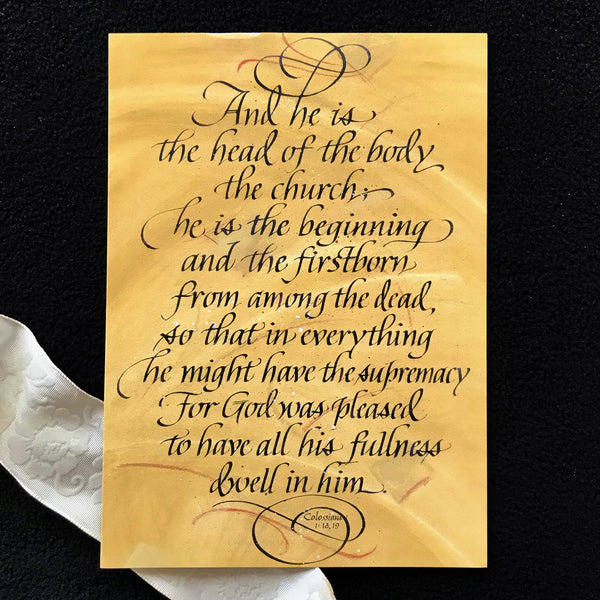 And he is
the head of the body
the church;
he is the beginning
and the firstborn
from among the dead,
so that in everything
he might have the supremacy
For God was pleased
to have all his fullness
dwell in him.
Colossians
1:18,19